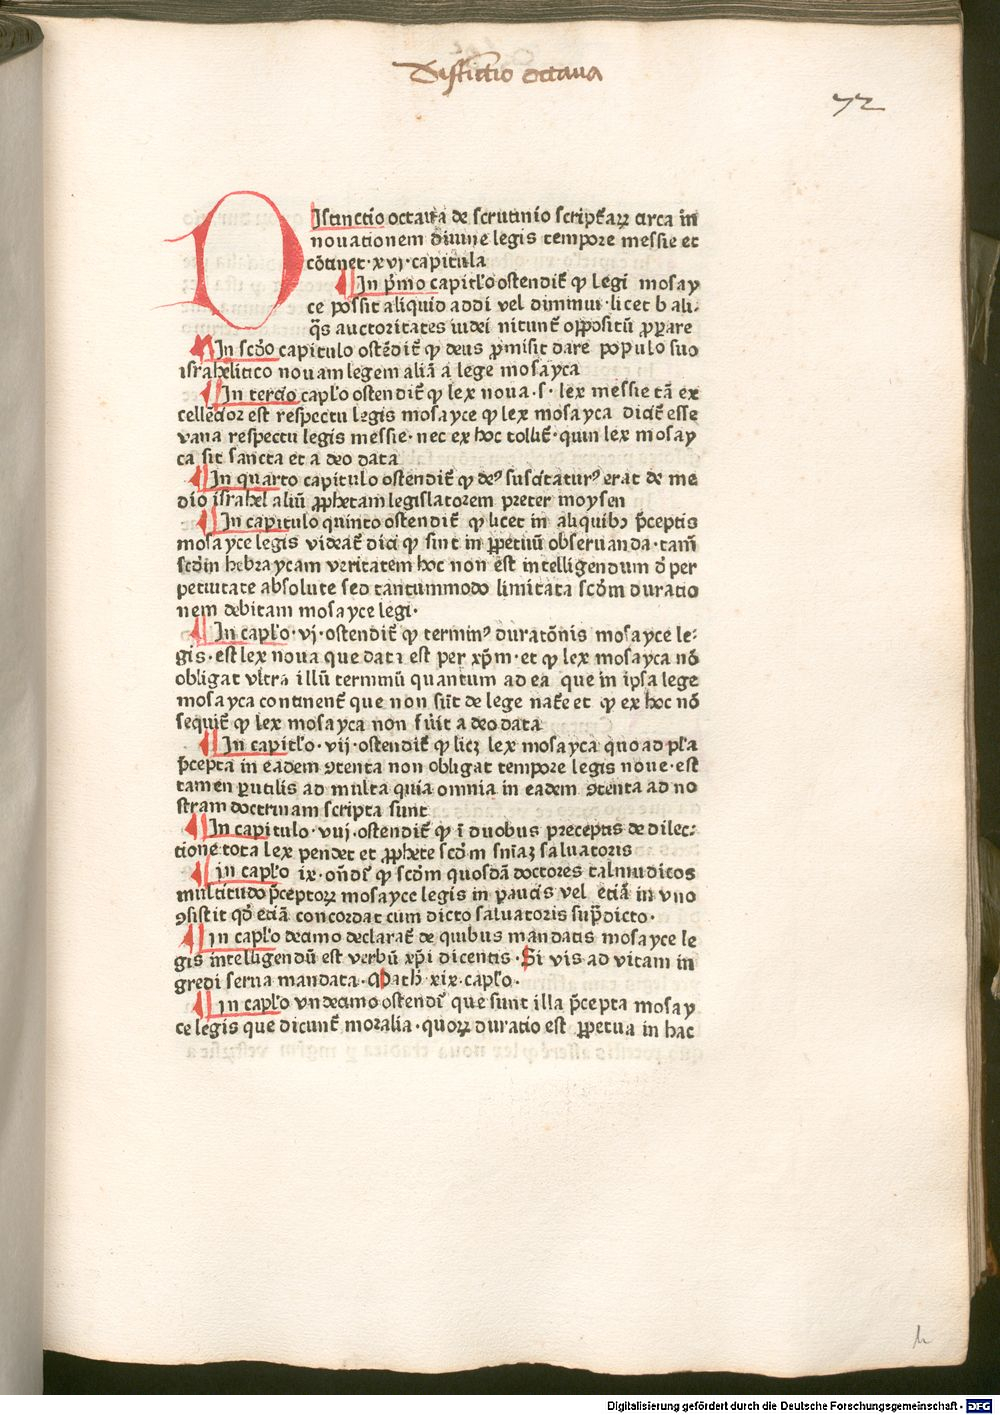 Distinctio octaua
72
DIstinctio octaua de scrutinio scripťaꝝ circa in
nouationem diuine legis tempore messie et
cōtinet·xvj·capitula
In pͥmo capitľo ostendiť ꝙ legi mosay
ce possit aliquid addi vel diminui·licet ꝑ ali-
q̄s auctoritates iudei nitunť oppositū ꝓbare
In scďo capitulo ostēdiť ꝙ deus ꝓmisit dare populo suo
israhelitico nouam legem aliā a lege mosayca
In tercio capľo ostendiť ꝙ lex noua·s·lex messie tā ex
cellēcior est respectu legis mosayce ꝙ lex mosayca diciť esse
vana respectu legis messie·nec ex hoc tolliť·quin lex mosay
ca sit sancta et a deo data
In quarto capitulo ostendiť ꝙ deꝰ suscitaturꝰ erat de me
dio israhel aliū ꝓphetam legislatorem preter moysen
In capitulo quinto ostendiť ꝙ licet in aliquibꝫ p̄ceptis
mosayce legis videať dici ꝙ sint in ꝑpetuū obseruanda·tam̄
scďm hebraycam veritatem hoc non est intelligendum ď per
petuitate absolute sed tantummodo limitata scďm duratio
nem debitam mosayce legi·
In capľo·vj·ostendiť ꝙ terminꝰ duratōnis mosayce le-
gis·est lex noua que data est per xp̄m·et ꝙ lex mosayca nō
obligat vltra illū terminū quantum ad ea que in ipsa lege
mosayca continenť que non sūt de lege naťe et ꝙ ex hoc nō
sequiť ꝙ lex mosayca non fūit a deo data
In capitľo·vij·ostendiť ꝙ licꝫ lex mosayca quo ad pľa
p̄cepta in eadem ꝯtenta non obligat tempore legis noue·est
tamen ꝑutilis ad multa quia omnia in eadem ꝯtenta ad no
stram doctrinam scripta sunt
In capitulo·viij·ostendiť ꝙ ī duobus preceptis de dilec-
tione tota lex pendet et ꝓphete scďm sn̄iaꝫ saluatoris
in capľo ix·on̄dͥť ꝙ scďm quosdā doctores talmudicos
multitudo p̄ceptoꝝ mosayce legis in paucis vel eciā in vno
ꝯsistit qď eciā concordat cum dicto saluatoris sup̄dicto·
in capľo decimo declarať de quibus mandatis mosayce le
gis intelligendū est verbū xp̄i dicentis·Si vis ad vitam in
gredi serua mandata·Math·xix·capľo·
in capľo vndecimo ostendiť que sunt illa p̄cepta mosay
ce legis que dicunť moralia·quoꝝ duratio est ꝑpetua in hac
h
Digitalisierung gefördert durch die Deutsche Forschungsgemeinschaft - DFG